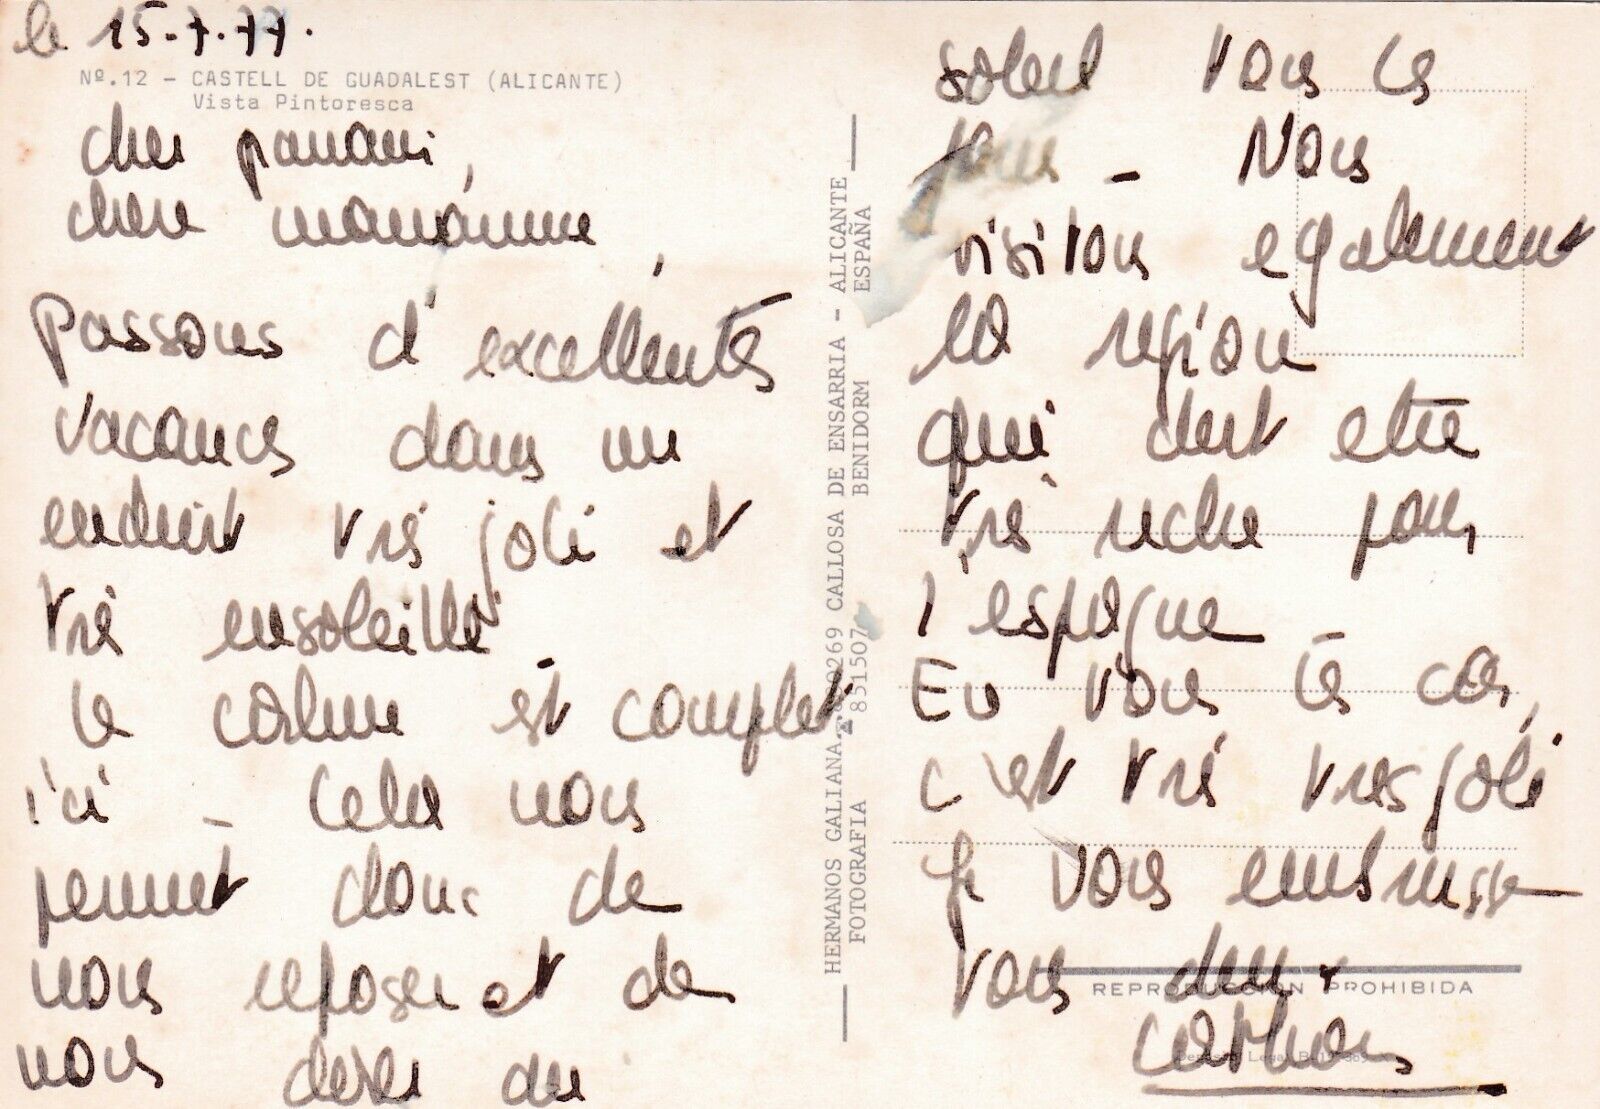 le 15.7.77.
Nº.12 – CASTELL DE GUADALEST (ALICANTE)
Vista Pintoresca
cher
chere
passons d'excellentes
vacances dans un
endroit très joli et
très ensoleillé.
le calme est complet
ici – Cela nous
permet donc de
nous reposer et de
nous du
HERMANOS GALIANA. 269 CALLOSA DE ENSARRIA – ALICANTE
FOTOGRAFIA 851507 BENIDORM ESPAÑA
soleil tous les
jours – Nous
visitons egalement
la region
qui doit etre
très riche pour
l'espagne
En tous les cas,
c'est très tres joli
Je vous embrasse
tous deux
REPRODUCCION PROHIBIDA
Deposito Legal B.